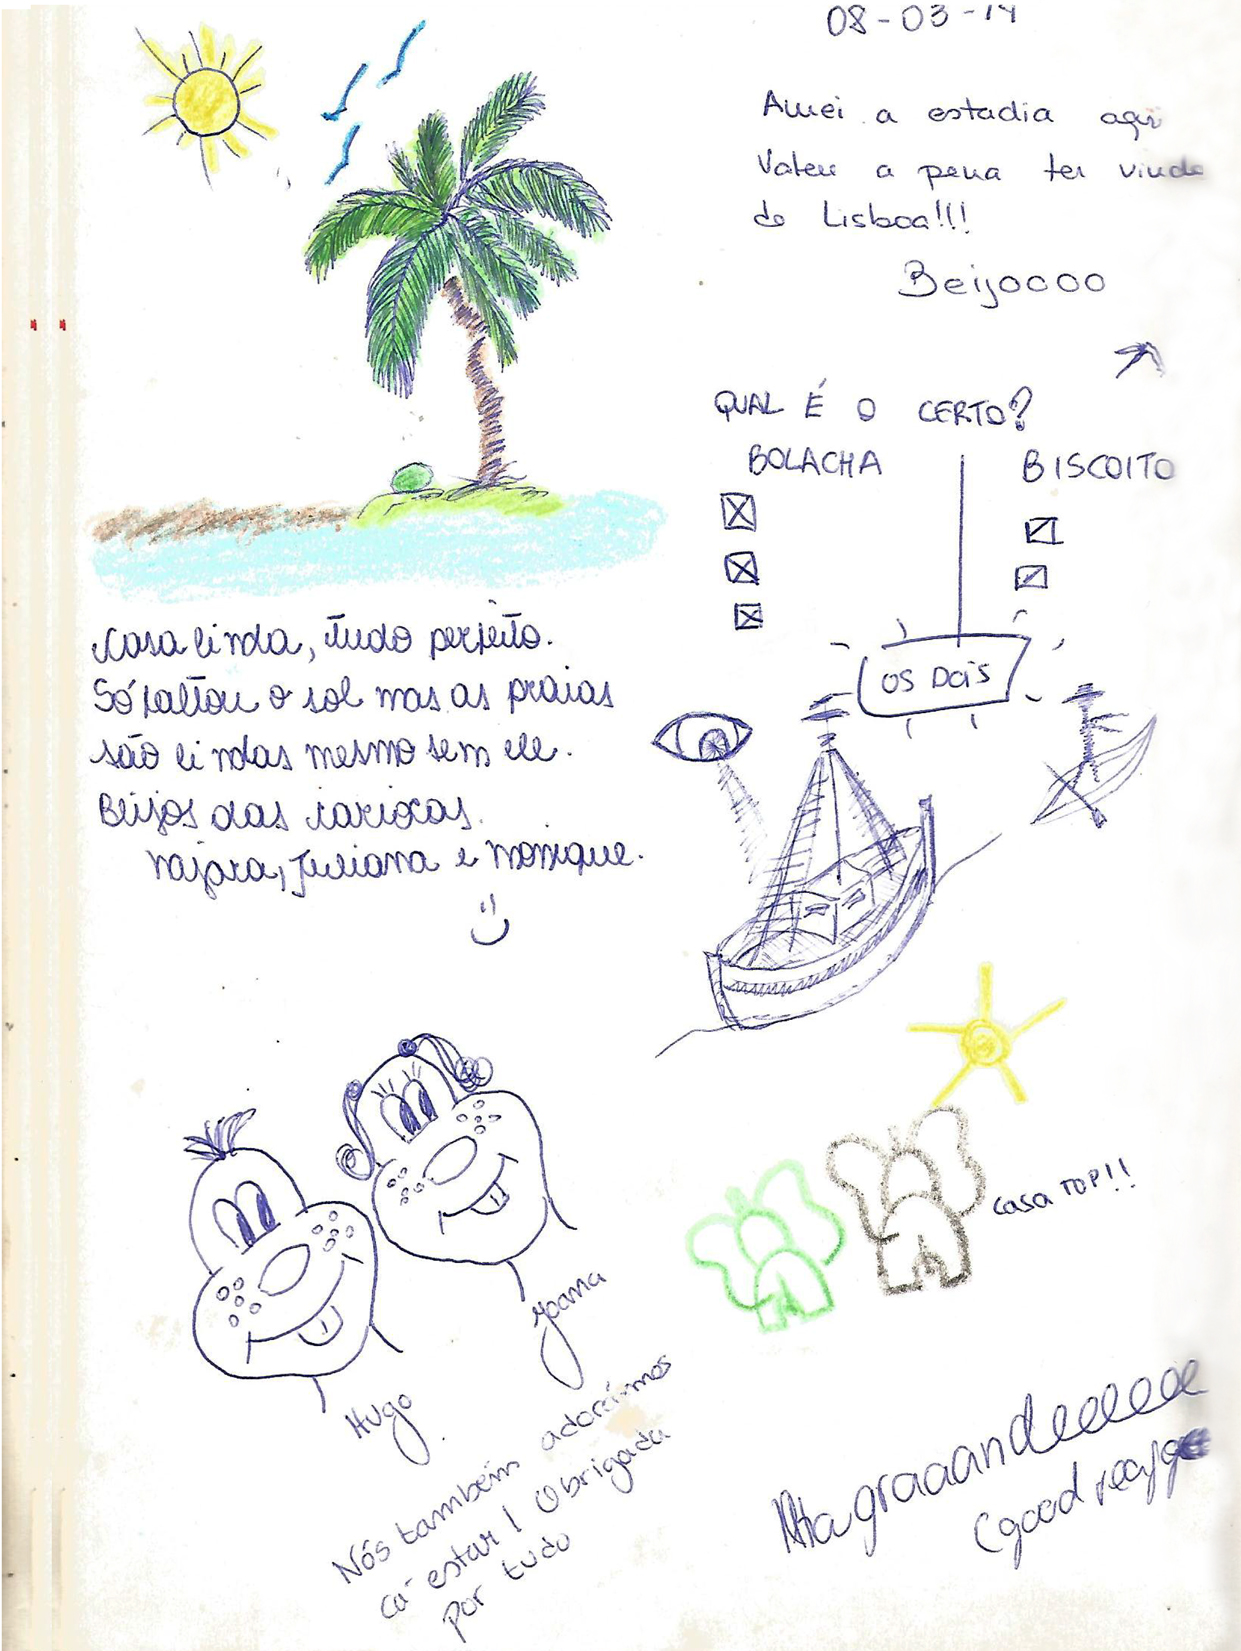 08-03-14
Amei a estadia aqui
Valeu a pena ter vindo
de Lisboa!!!
Beijoooo
QUAL É O CERTO?
BOLACHA BISCOITO
OS DOIS
Casa linda, tudo perfeito.
Só faltou o sol mas as praias
são lindas mesmo sem ele.
Beijos das cariocas.
Najara, Juliana e Monique.
:)
Casa TOP!!
Joana
Hugo
Nós também adorámos
cá estar! Obrigada
por tudo
graaandeeeeee
(good